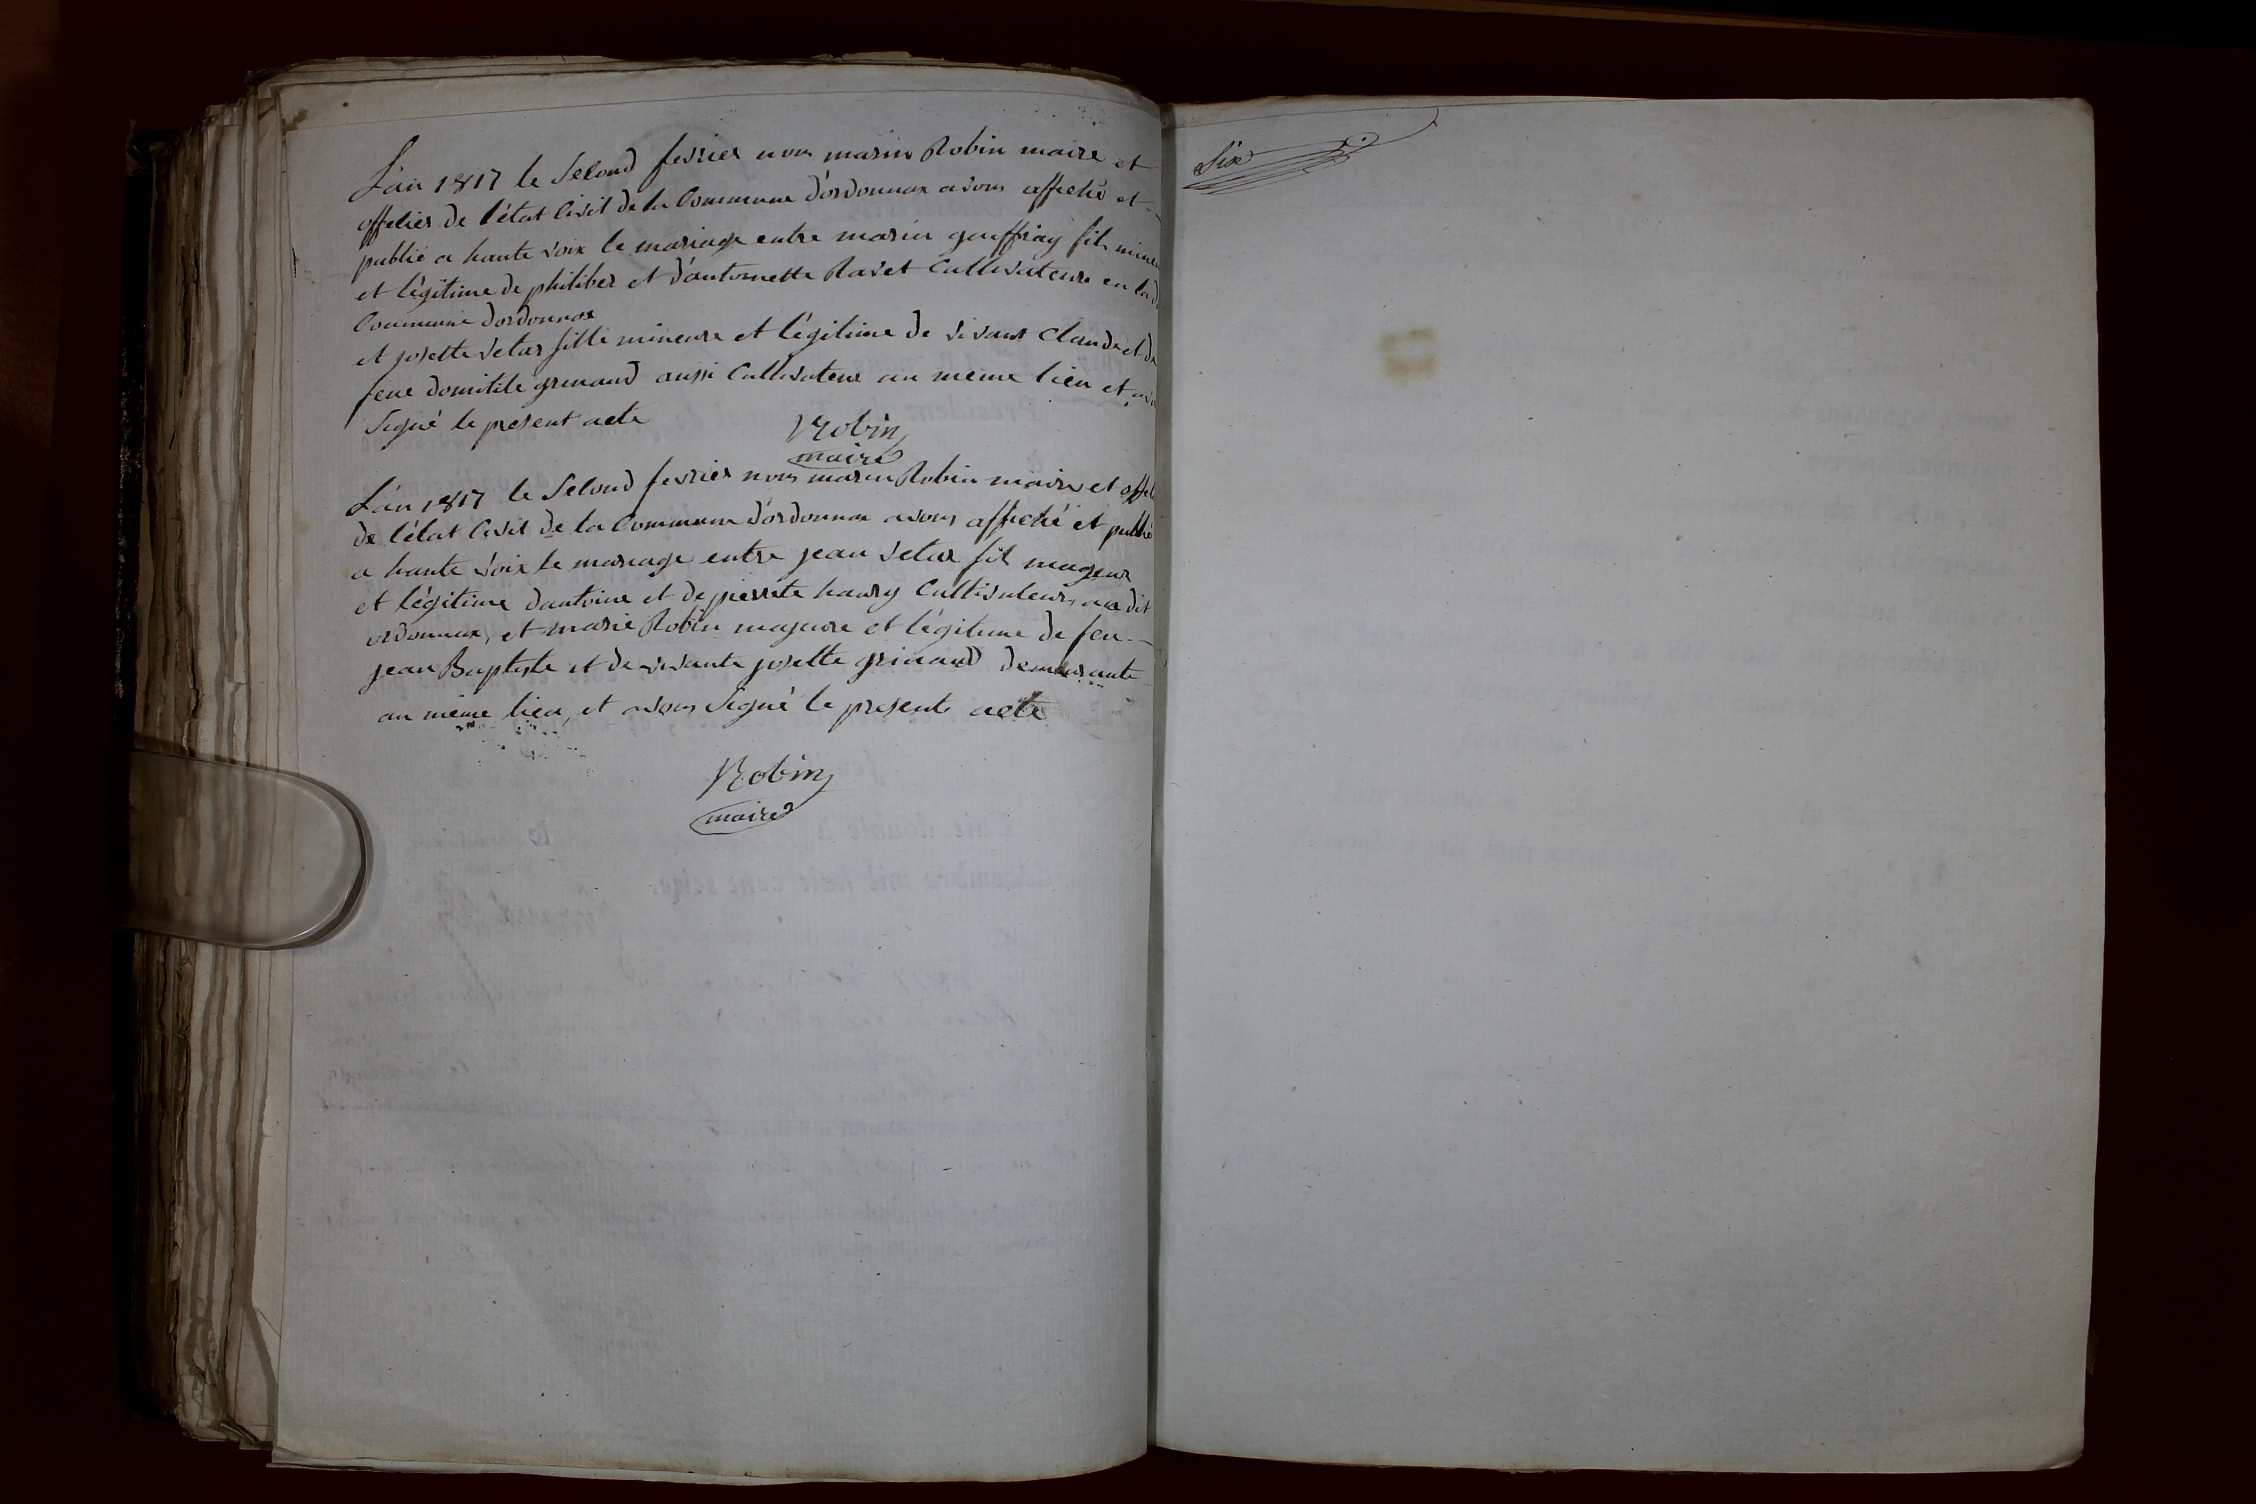 L'an 1817 le Second fevrier nous marin Robin maire et
officier de l'état Civil de la Commune d'ordonnax avons affiché et
publié a haute voix le mariage entre marin gouffray fils mineur
et légitime de philiber et d'antoinette Ravet Cultivateurs en la d
Commune d'ordonnax
et josette vetar fille mineure et légitime de vivant Claude et de
feue domitile grenaud aussi Cultivateur au meme lieu et avons
Signé le present acte
Robin
maire
L'an 1817 le Second fevrier nous marin Robin maire et offici
de l'état Civil de la Commune d'ordonnax avons affiché et publié
a haute voix le mariage entre jean vetar fils majeur
et légitime d'antoine et de pierrete hanry Cultivateurs au dit
ordonnax, et marie Robin majeure et légitime de feu
jean Baptiste et de vivante josette grinand demeurante
au même lieu, et avons Signé le present acte
Robin
maire
Six